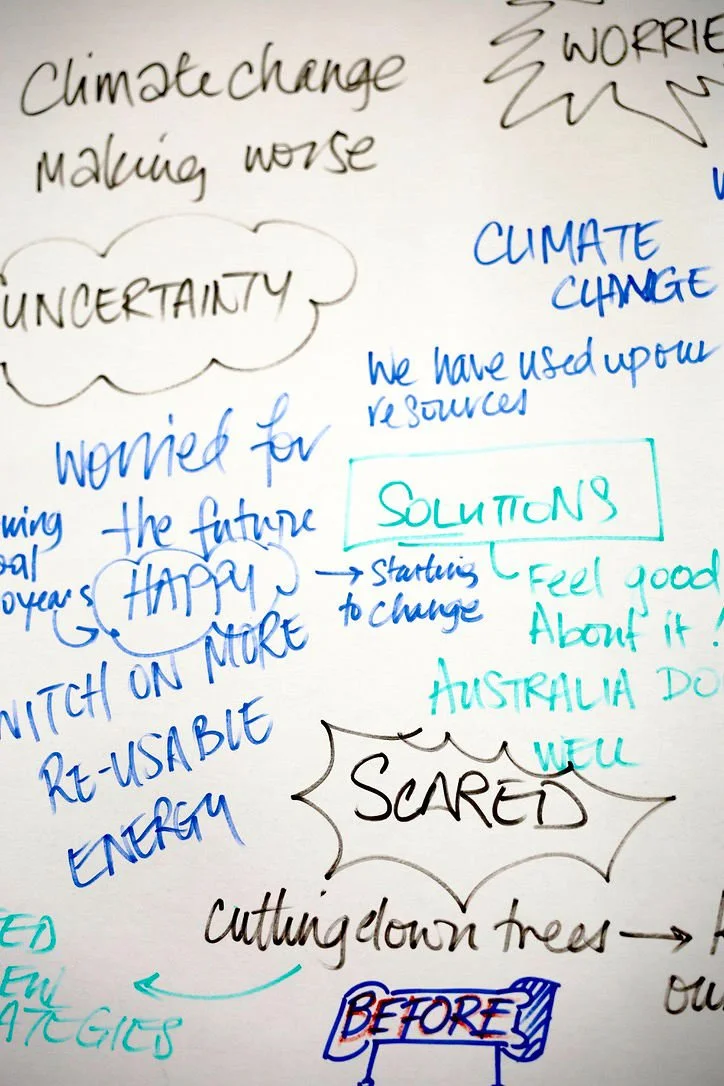 Climate change
making worse
WORRIE
UNCERTAINTY
CLIMATE
CHANGE
We have used up our
resources
worried for
the future
HAPPY
Starting
to change
SWITCH ON MORE
RE-USABLE
ENERGY
SOLUTIONS
Feel good
About it!
AUSTRALIA DO
WELL
SCARED
cutting down trees
ED
EW
ATEGIES
BEFORE